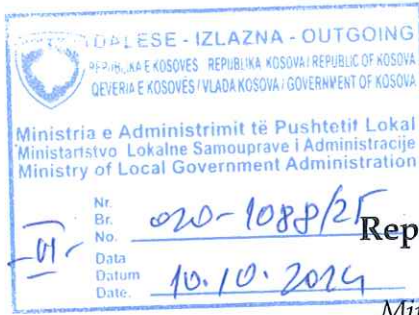 DALESE - IZLAZNA - OUTGOING
REPUBLIKA E KOSOVES REPUBLIKA KOSOVA / REPUBLIC OF KOSOVA
QEVERIA E KOSOVËS / VLADA KOSOVA / GOVERNMENT OF KOSOVA
Ministria e Administrimit të Pushtetit Lokal
Ministartstvo Lokalne Samouprave i Administracije
Ministry of Local Government Administration
Nr.
Br.
No. 020-1088/25
Rep
-01-
Data
Datum
Date. 10.10.2024